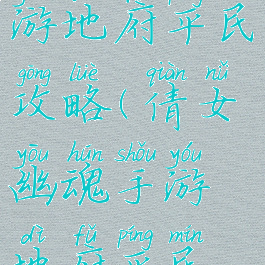 游地府平民
gōng lüè qiàn nǚ
攻略(倩女
yōu hún shǒu yóu
幽魂手游
dì fǔ píng mín
地府平民